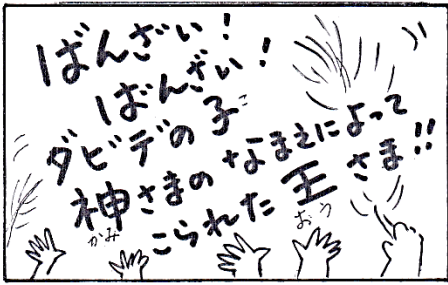 ばんざい!
ばんざい!
ダビデの子
神さまのなまえによって
かみ
こられた王さま!!
おう